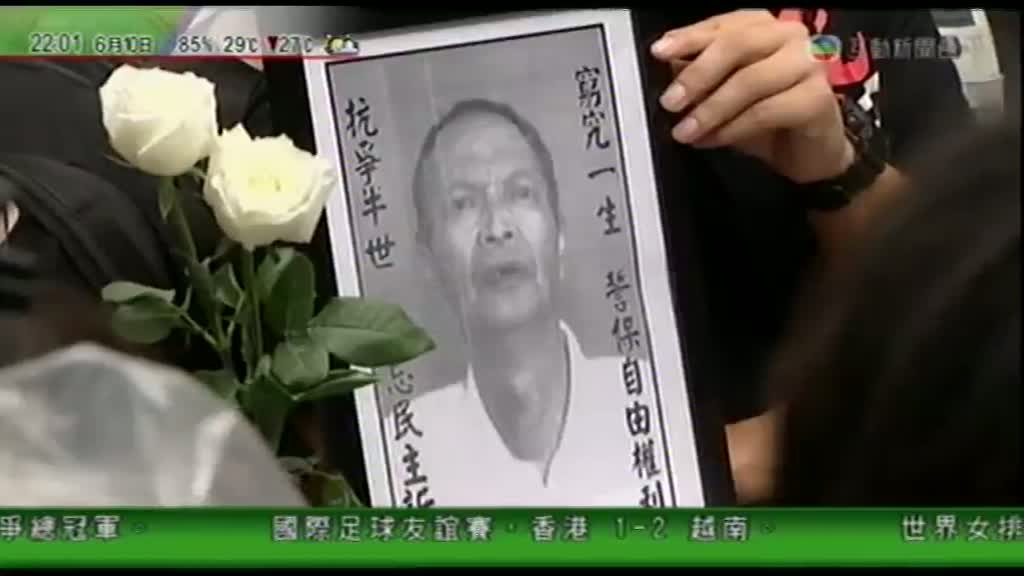 22:01 6月10日 85% 29℃ 27℃
互動新聞台
窮究一生 誓保自由權利
抗爭半世 志民主訴
爭總冠軍。 國際足球友誼賽，香港 1-2 越南。 世界女排